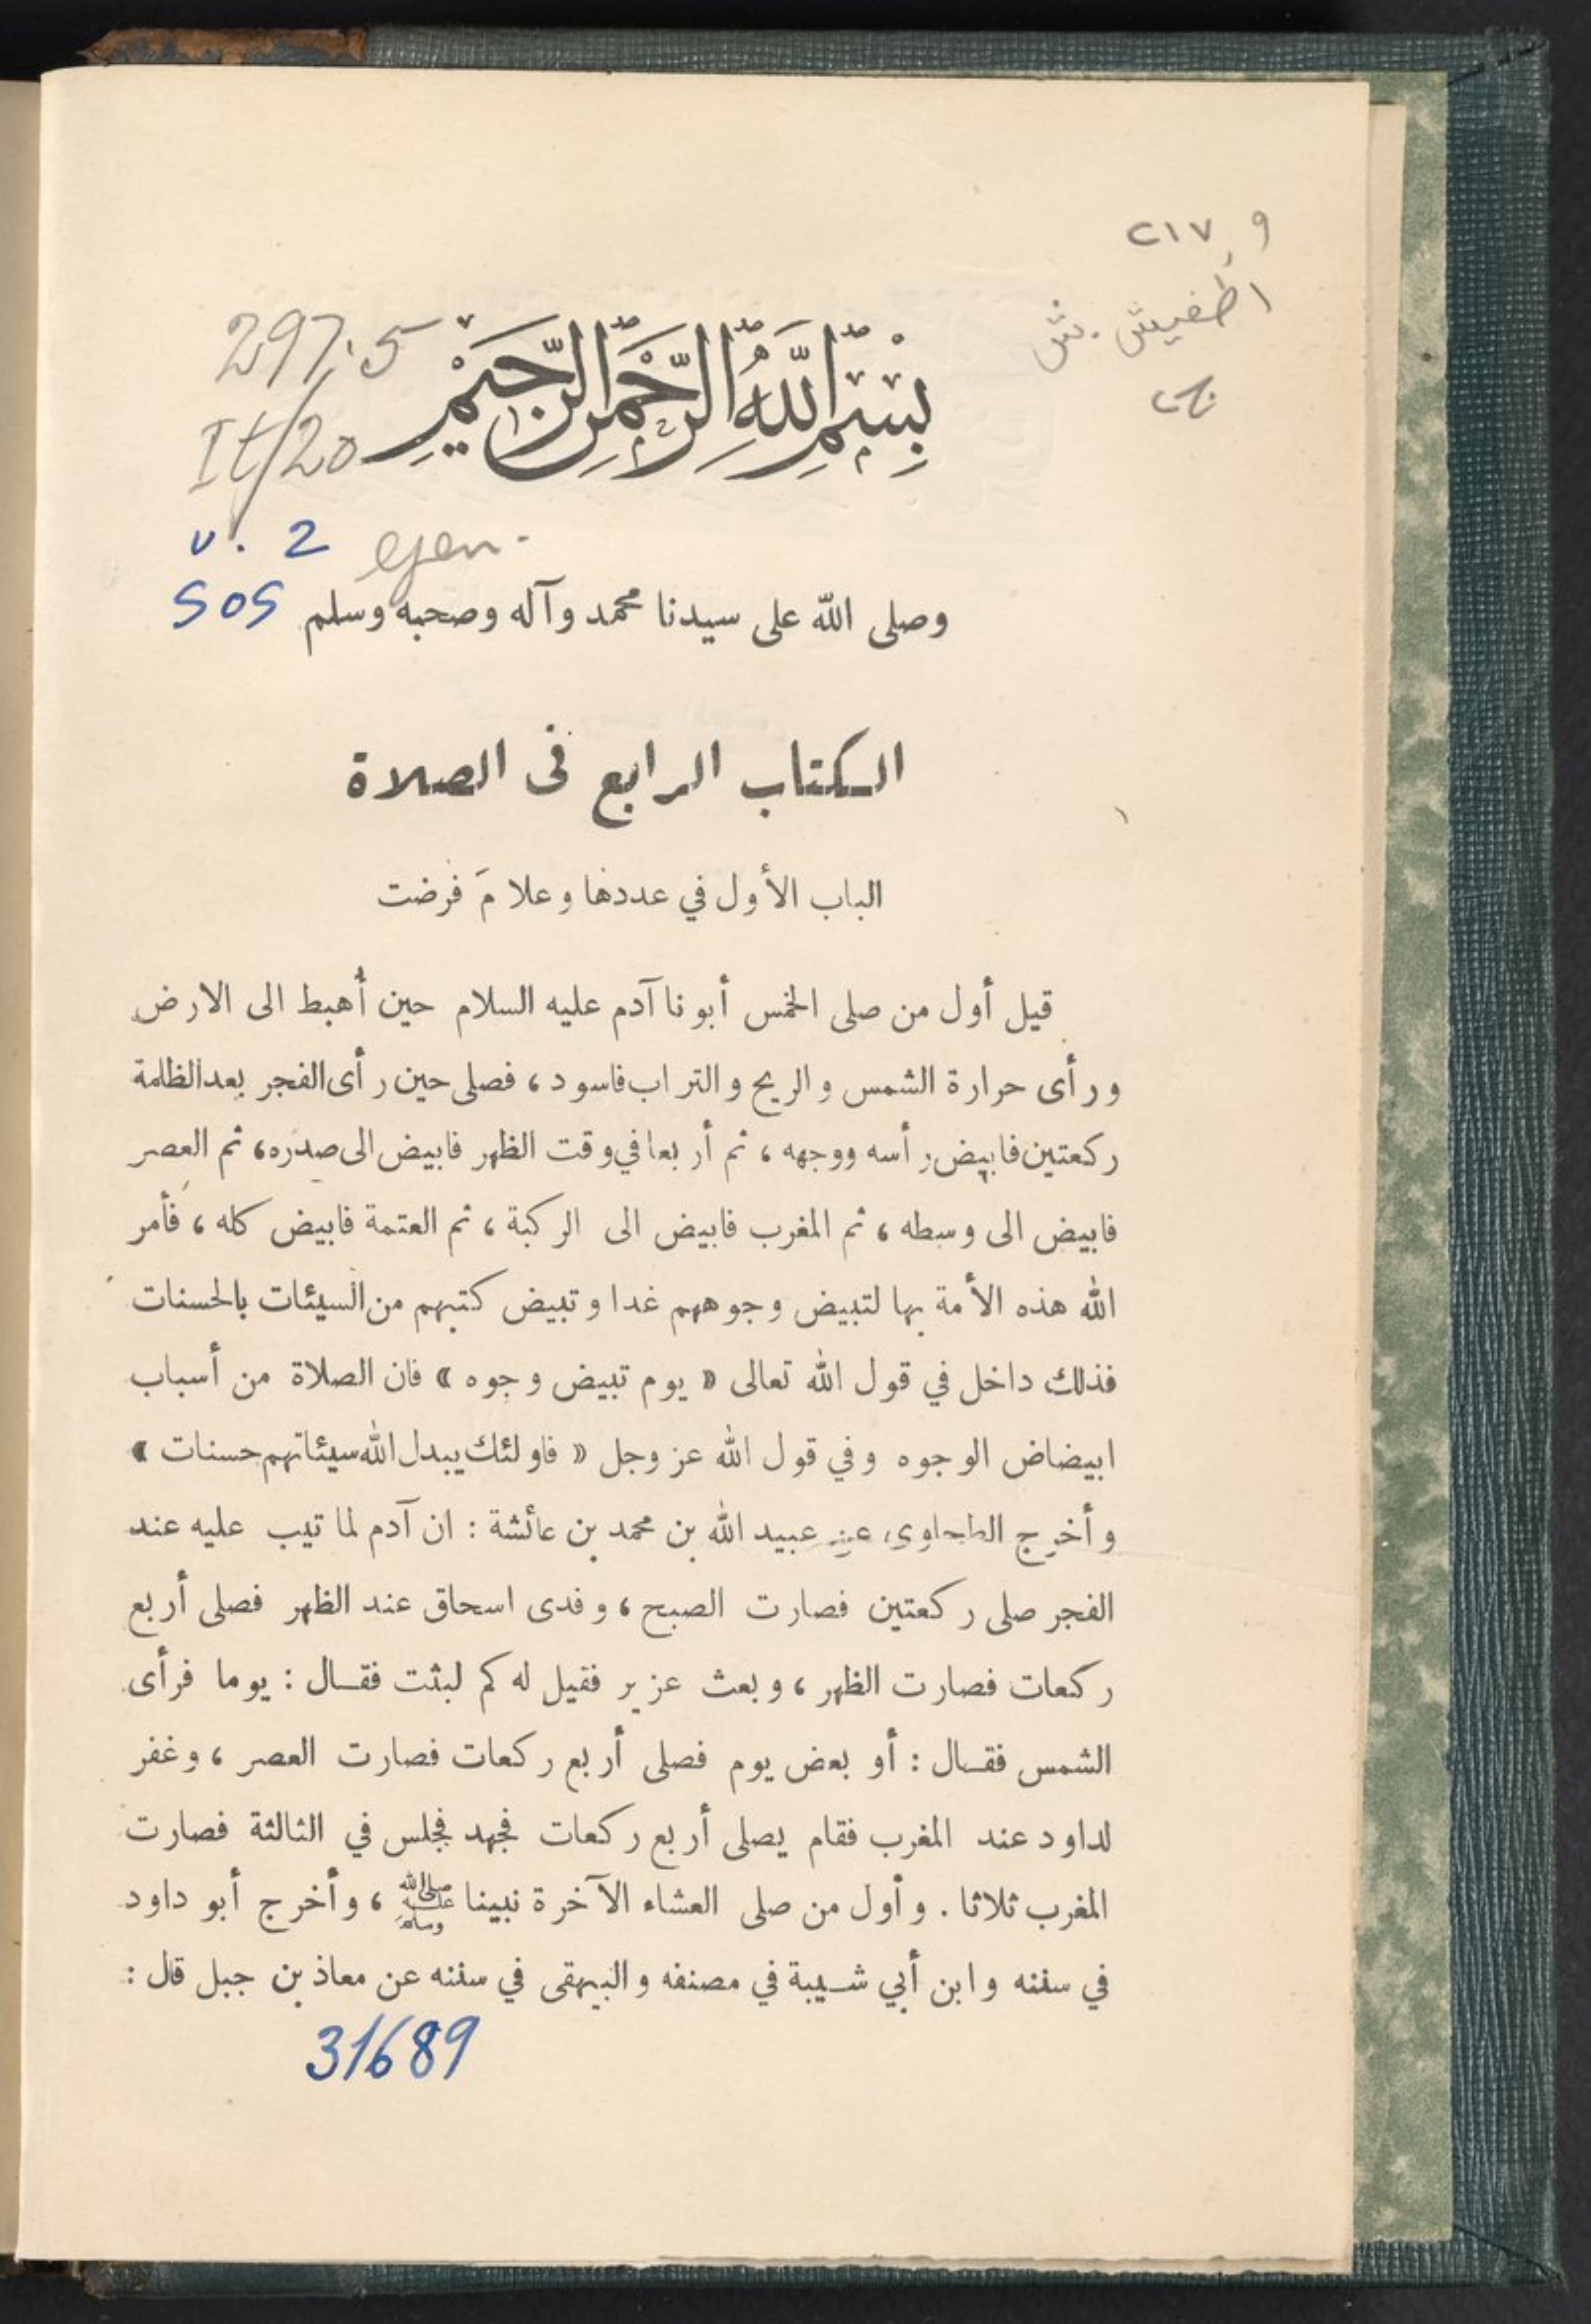 ٢١٧,٩
اطفيش . ش
ج٢
297.5
It/20
v. 2
SOS
بسم الله الرحمن الرحيم
وصلى الله على سيدنا محمد وآله وصحبه وسلم
الكتاب الرابع فى الصلاة
الباب الأول في عددها وعلامَ فرضت
قيل أول من صلى الخمس أبونا آدم عليه السلام حين أُهبط الى الارض
ورأى حرارة الشمس والريح والتراب فاسود ، فصلى حين رأى الفجر بعد الظلمة
ركعتين فابيض رأسه ووجهه ، ثم أربعا في وقت الظهر فابيض الى صدره ، ثم العصر
فابيض الى وسطه ، ثم المغرب فابيض الى الركبة ، ثم العتمة فابيض كله ، فأمر
الله هذه الأمة بها لتبيض وجوههم غدا وتبيض كتبهم من السيئات بالحسنات
فذلك داخل في قول الله تعالى « يوم تبيض وجوه » فان الصلاة من أسباب
ابيضاض الوجوه وفي قول الله عز وجل « فاولئك يبدل الله سيئاتهم حسنات »
وأخرج الطحاوى عن عبيد الله بن محمد بن عائشة : ان آدم لما تيب عليه عند
الفجر صلى ركعتين فصارت الصبح ، وفدى اسحاق عند الظهر فصلى أربع
ركعات فصارت الظهر ، وبعث عزير فقيل له كم لبثت فقال : يوما فرأى
الشمس فقال : أو بعض يوم فصلى أربع ركعات فصارت العصر ، وغفر
لداود عند المغرب فقام يصلى أربع ركعات فجهد فجلس في الثالثة فصارت
المغرب ثلاثا . وأول من صلى العشاء الآخرة نبينا ﷺ ، وأخرج أبو داود
في سننه وابن أبي شيبة في مصنفه والبيهقى في سننه عن معاذ بن جبل قال :
31689